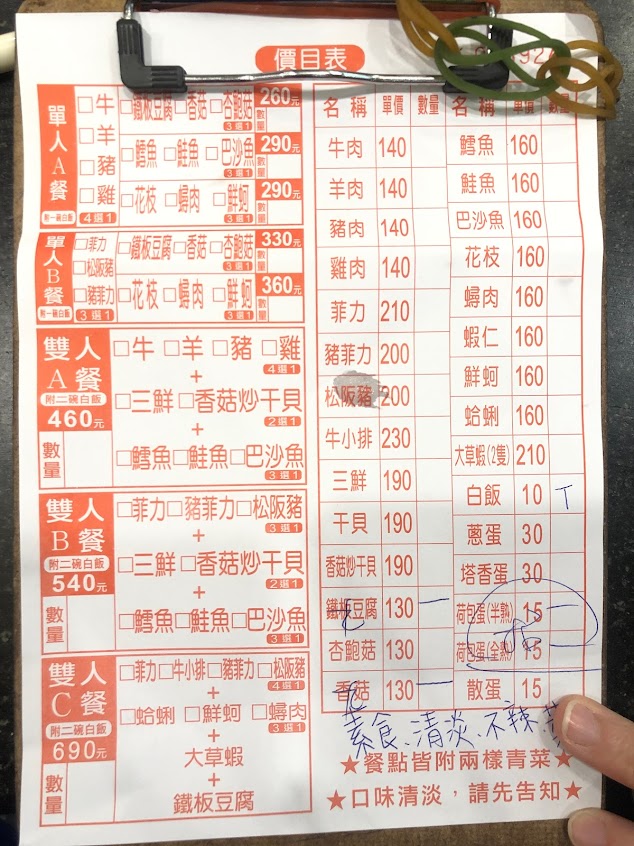 價目表
單人A餐
附一碗白飯
□牛
□羊
□豬
□雞
4選1
□鐵板豆腐□香菇□杏鮑菇 260元
3選1
數量
□鱈魚□鮭魚□巴沙魚 290元
3選1
數量
□花枝□蟳肉□鮮蚵 290元
3選1
數量
單人B餐
附一碗白飯
□菲力
□松阪豬
□豬菲力
3選1
□鐵板豆腐□香菇□杏鮑菇 330元
3選1
數量
□花枝□蟳肉□鮮蚵 360元
3選1
數量
雙人A餐
附二碗白飯
460元
數量
□牛□羊□豬□雞
4選1
+
□三鮮□香菇炒干貝
2選1
+
□鱈魚□鮭魚□巴沙魚
3選1
雙人B餐
附二碗白飯
540元
數量
□菲力□豬菲力□松阪豬
3選1
+
□三鮮□香菇炒干貝
2選1
+
□鱈魚□鮭魚□巴沙魚
3選1
雙人C餐
附二碗白飯
690元
數量
□菲力□牛小排□豬菲力□松阪豬
4選1
+
□蛤蜊□鮮蚵□蟳肉
3選1
+
大草蝦
+
鐵板豆腐
名稱 單價 數量 名稱 單價 數量
牛肉 140 鱈魚 160
羊肉 140 鮭魚 160
豬肉 140 巴沙魚 160
雞肉 140 花枝 160
菲力 210 蟳肉 160
豬菲力 200 蝦仁 160
松阪豬 200 鮮蚵 160
牛小排 230 蛤蜊 160
三鮮 190 大草蝦(2隻) 210
干貝 190 白飯 10 T
香菇炒干貝 190 蔥蛋 30
鐵板豆腐 130 一 塔香蛋 30
杏鮑菇 130 荷包蛋(半熟) 15
香菇 130 一 荷包蛋(全熟) 15
散蛋 15
素食、清淡、不辣
★餐點皆附兩樣青菜★
★口味清淡，請先告知★